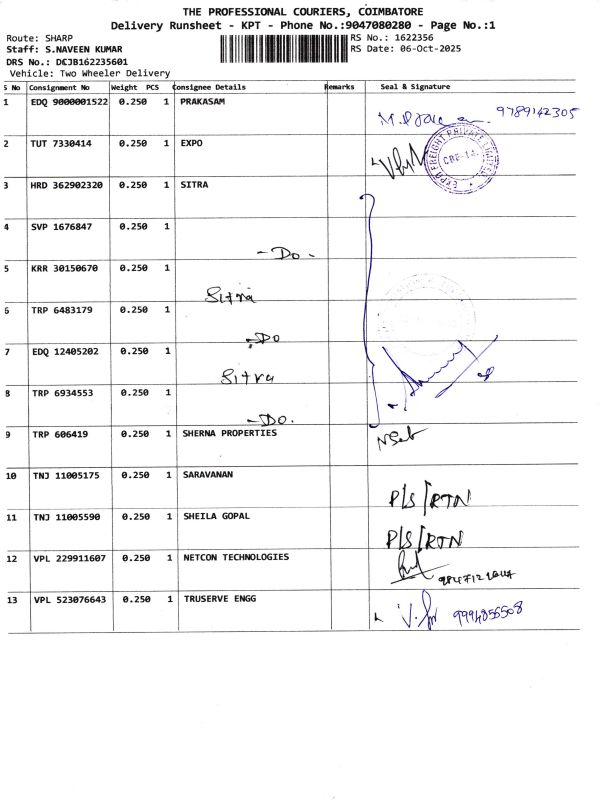 THE PROFESSIONAL COURIERS, COIMBATORE
Delivery Runsheet - KPT - Phone No.:9047080280 - Page No.:1
Route: SHARP RS No.: 1622356
Staff: S.NAVEEN KUMAR RS Date: 06-Oct-2025
DRS No.: DCJB162235601
Vehicle: Two Wheeler Delivery
S No Consignment No Weight PCS Consignee Details Remarks Seal & Signature
1 EDQ 9000001522 0.250 1 PRAKASAM 9789142305
2 TUT 7330414 0.250 1 EXPO
EXPO FREIGHT PRIVATE LIMITED
3 HRD 362902320 0.250 1 SITRA
4 SVP 1676847 0.250 1 -Do-
5 KRR 30150670 0.250 1 Sitra
6 TRP 6483179 0.250 1 -Do
7 EDQ 12405202 0.250 1 Sitra
8 TRP 6934553 0.250 1 -Do.
9 TRP 606419 0.250 1 SHERNA PROPERTIES
10 TNJ 11005175 0.250 1 SARAVANAN P/S/RTN
11 TNJ 11005590 0.250 1 SHEILA GOPAL P/S/RTN
12 VPL 229911607 0.250 1 NETCON TECHNOLOGIES
13 VPL 523076643 0.250 1 TRUSERVE ENGG 9994856508